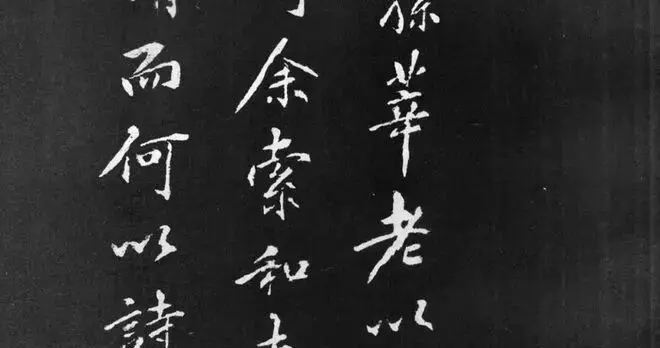 孫華老以
余索和
而何以詩